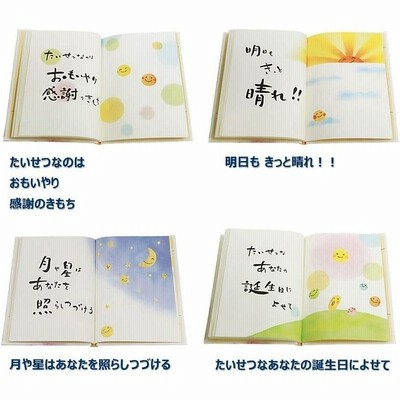 たいせつなのは
おもいやり
感謝のきもち
明日も
きっと
晴れ!!
たいせつなのは
おもいやり
感謝のきもち
明日も きっと晴れ！！
月や星は
あなたを
照らしつづける
たいせつな
あなたの
誕生日に
よせて
月や星はあなたを照らしつづける
たいせつなあなたの誕生日によせて